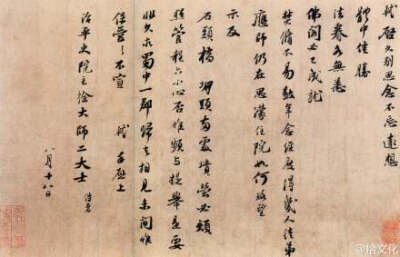 軾啟久別思念不忘遠想
體中佳勝
法眷各無恙
佛閣必已成就
焚脩不易數年念經度得幾人徒弟
應師仍在思濛住院如何略望
示及
石頭橋 堋頭兩處墳塋必煩
照管程六小心否惟頻與提舉是要
非久求蜀中一郡歸去相見未間惟
保愛之不宣 軾手啟上
治平史院主徐大師二大士 侍者
八月十八日
@拾文化